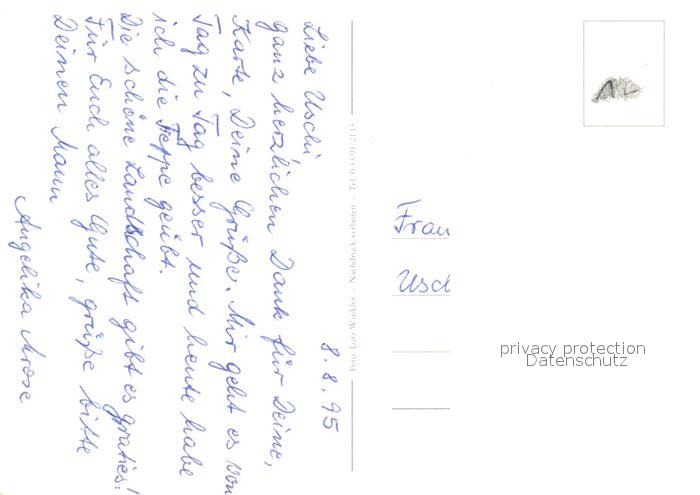 8.8.95
Liebe Uschi
ganz herzlichen Dank für Deine,
Karte, Deine Grüße. Mir geht es von
Tag zu Tag besser und heute habe
ich die Treppe geübt.
Die schöne Landschaft gibt es gratis!
Für Euch alles Gute, grüße bitte
Deinen Mann
Angelika
Foto: Lutz Winkler - Nachdruck verboten - Tel.
Frau
Usch
privacy protection
Datenschutz